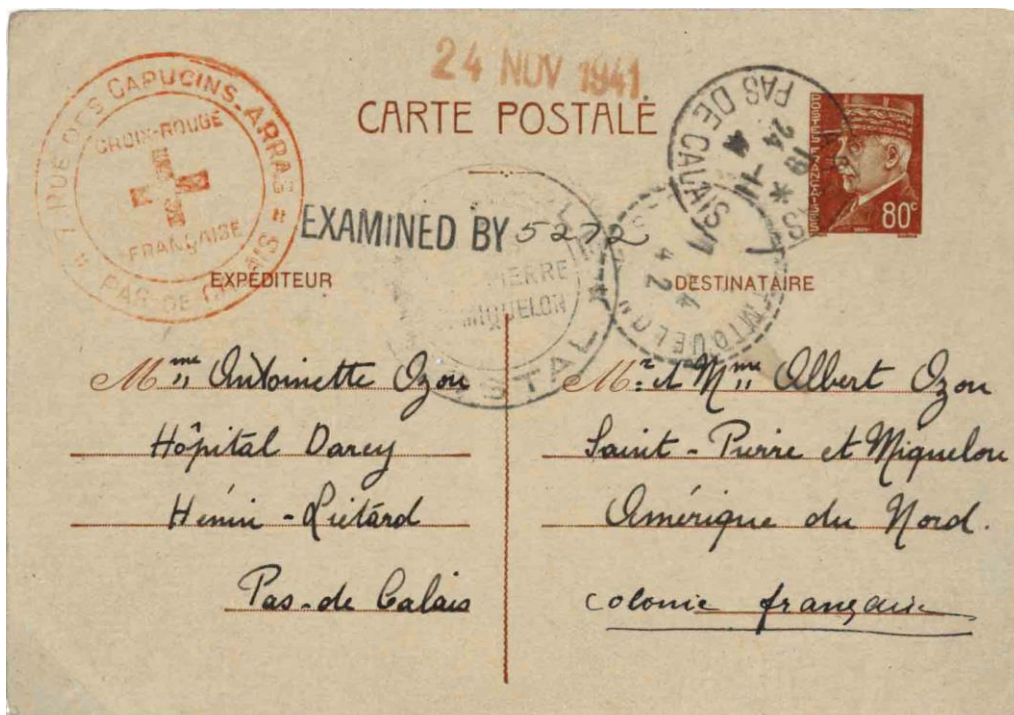 24 NOV 1941
CARTE POSTALE
7, RUE DES CAPUCINS-ARRAS
PAS-DE-CALAIS
CROIX-ROUGE
FRANÇAISE
PAS DE CALAIS
19 *
24 -11
41
POSTES FRANÇAISES
80c
EXAMINED BY 5272
PIERRE
MIQUELON
POSTAL
4
42
MIQUELON
EXPÉDITEUR
Mme Antoinette Ozon
Hôpital Darcy
Hénin-Liétard
Pas-de Calais
DESTINATAIRE
Mr et Mme Albert Ozon
Saint-Pierre et Miquelon
Amérique du Nord.
colonie française